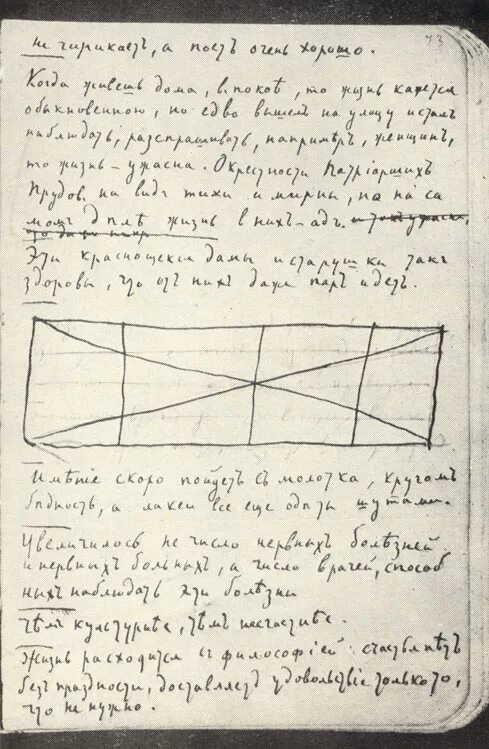 73
не чирикаетъ, а поетъ очень хорошо.
Когда живешь дома, в покоѣ, то жизнь кажется
обыкновенною, но едва вышелъ на улицу и сталъ
наблюдать, разспрашивать, напримѣръ, женщинъ,
то жизнь – ужасна. Окрестности Патріаршихъ
Прудов. на видъ тихи и мирны, но на са
момъ дѣлѣ жизнь в нихъ – адъ.
Эти краснощекія дамы и старушки такъ
здоровы, что отъ нихъ даже паръ идетъ.
Имѣніе скоро пойдетъ съ молотка, кругомъ
бѣдность, а лакеи все еще одѣты шутами.
Увеличилось не число нервныхъ болѣзней
и нервныхъ больныхъ, а число врачей, способ
ныхъ наблюдать эти болѣзни
Чѣмъ культурнѣе, тѣмъ несчастнѣе.
Жизнь расходится съ философіей: счастья нѣтъ
безъ праздности, доставляетъ удовольствіе только то,
что не нужно.